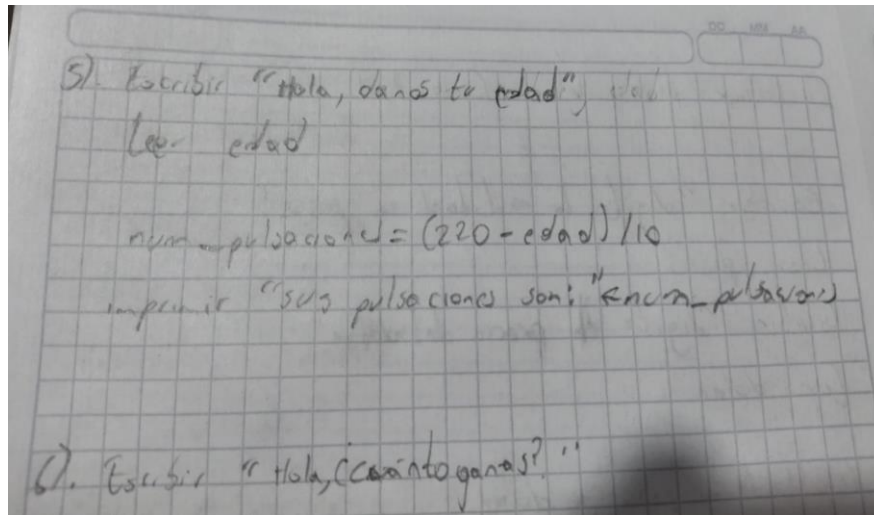 5). Escribir "Hola, danos tu edad"
Leer edad
num_pulsaciones = (220 - edad) / 10
imprimir "sus pulsaciones son: " & num_pulsaciones
6). Escribir "Hola, ¿Cuánto ganas?"